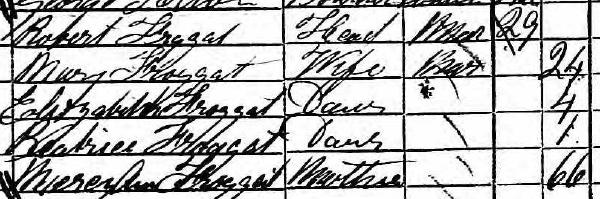 Robert Froggat Head Mar 29
Mary Froggat Wife Mar 24
Elizabeth Froggat Daur 4
Beatrice Froggat Daur 1
Mercy Ann Froggat Mother 66